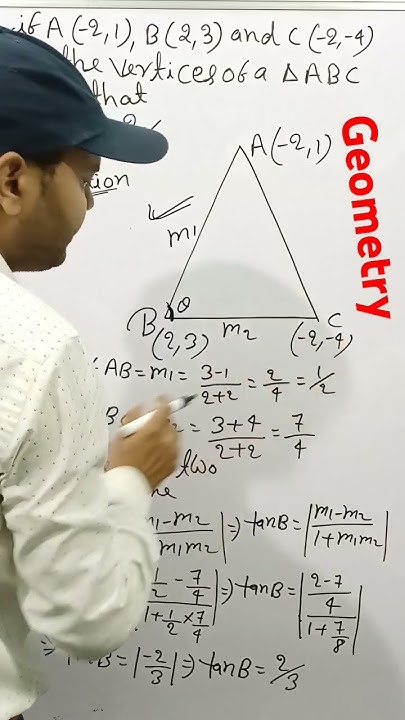 if A(-2,1), B(2,3) and C(-2,-4)
the vertices of a △ABC
that
A(-2,1)
Geometry
m1
θ
B
m2
C
(2,3)
(-2,-4)
AB=m1= (3-1)/(2+2) = 2/4 = 1/2
= (3+4)/(2+2) = 7/4
two
m1-m2 / m1m2 | ⇒ tanB= | (m1-m2)/(1+m1m2) |
(1/2 - 7/4)/(1+1/2×7/4) | ⇒ tanB= | ((2-7)/4)/(1+7/8) |
B= |-2/3| ⇒ tanB= 2/3